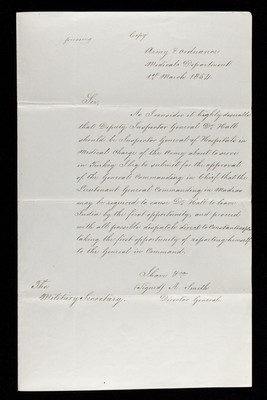 Copy
Pressing
Army & Ordnance
Medical Department
1st March 1854
Sir,
As I consider it highly desirable
that Deputy Inspector General Dr. Hall
should be Inspector General of Hospitals in
Medical Charge of the Army about to serve
in Turkey I beg to submit for the approval
of the General Commanding in Chief that the
Lieutenant General Commanding in Madras
may be required to move Dr. Hall to leave
India by the first opportunity, and proceed
with all possible dispatch direct to Constantinople
taking the first opportunity of reporting himself
to the General in Command.
I have &c
(Signed) A. Smith
Director General
The
Military Secretary